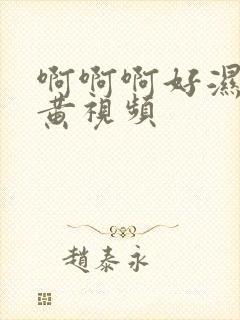 啊啊啊好濕
黃視頻
趙泰永